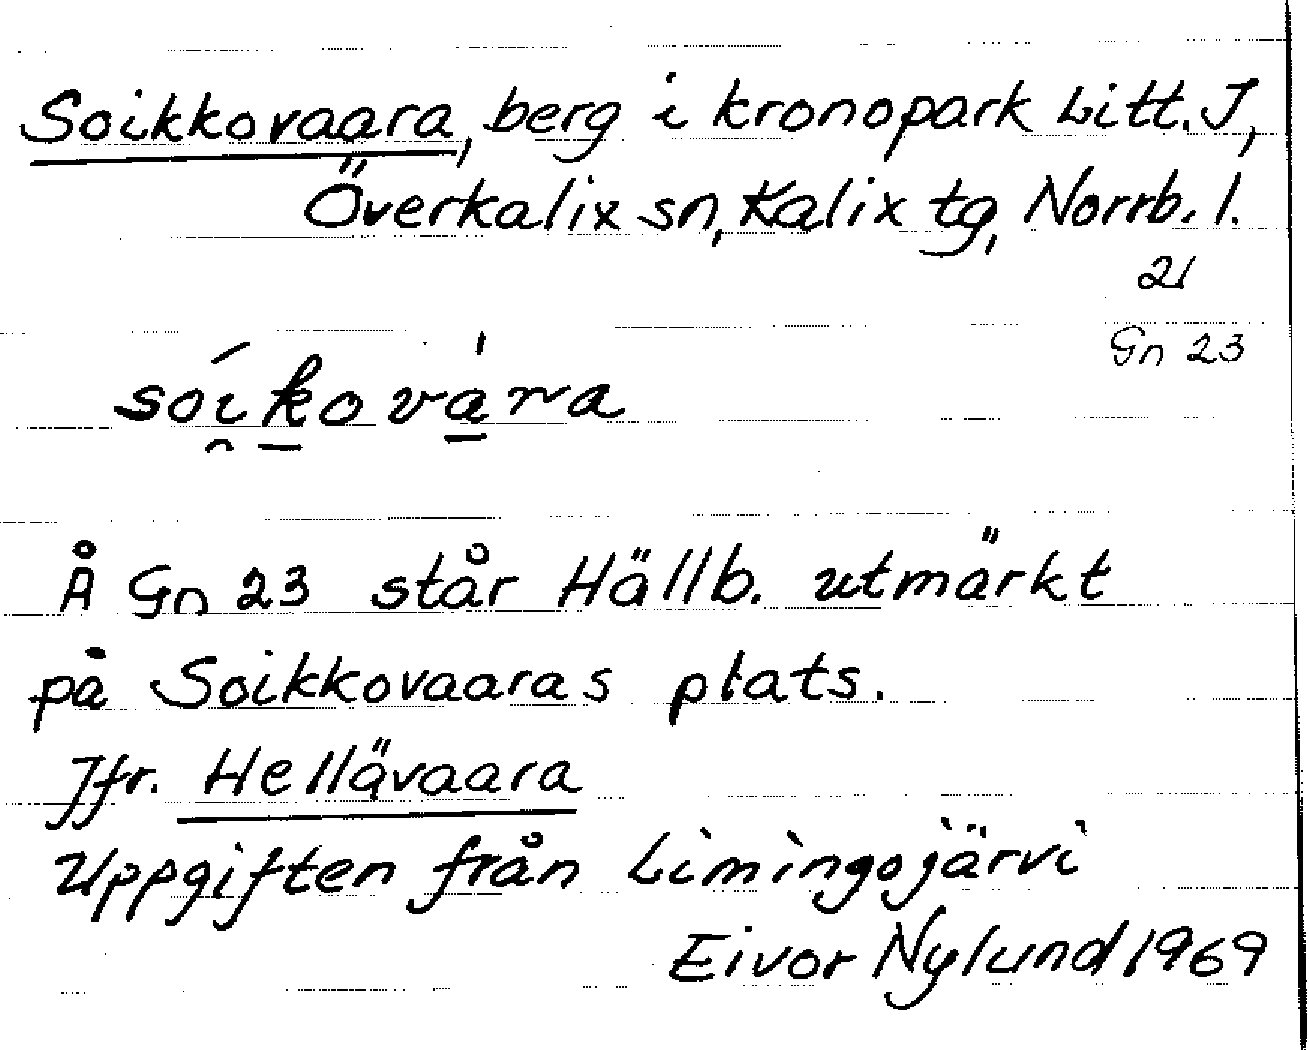 Soikkovaara, berg i kronopark Litt. J,
Överkalix sn, Kalix tg, Norrb. l.
21
Gn 23
sói̯k̲ová̲ra
Å Gn 23 står Hällb. utmärkt
på Soikkovaaras plats.
Jfr. Hellävaara
Uppgiften från Limingojärvi
Eivor Nylund 1969